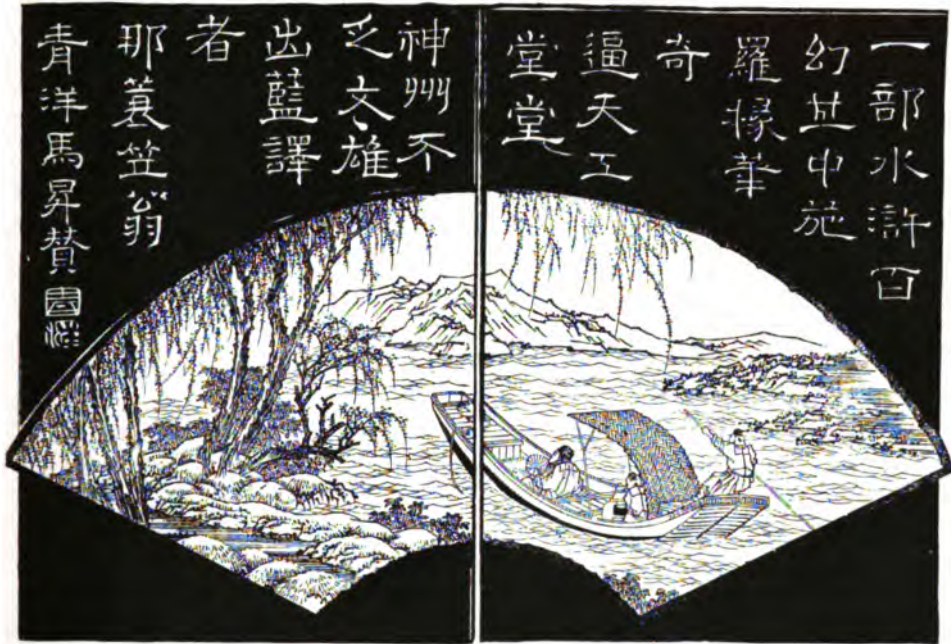 一部水滸百
幻其中施
羅椽筆
奇
逼天工
堂堂
神州不
乏文雄
出藍譯
者
那蓑笠翁
青洋馬昇賛